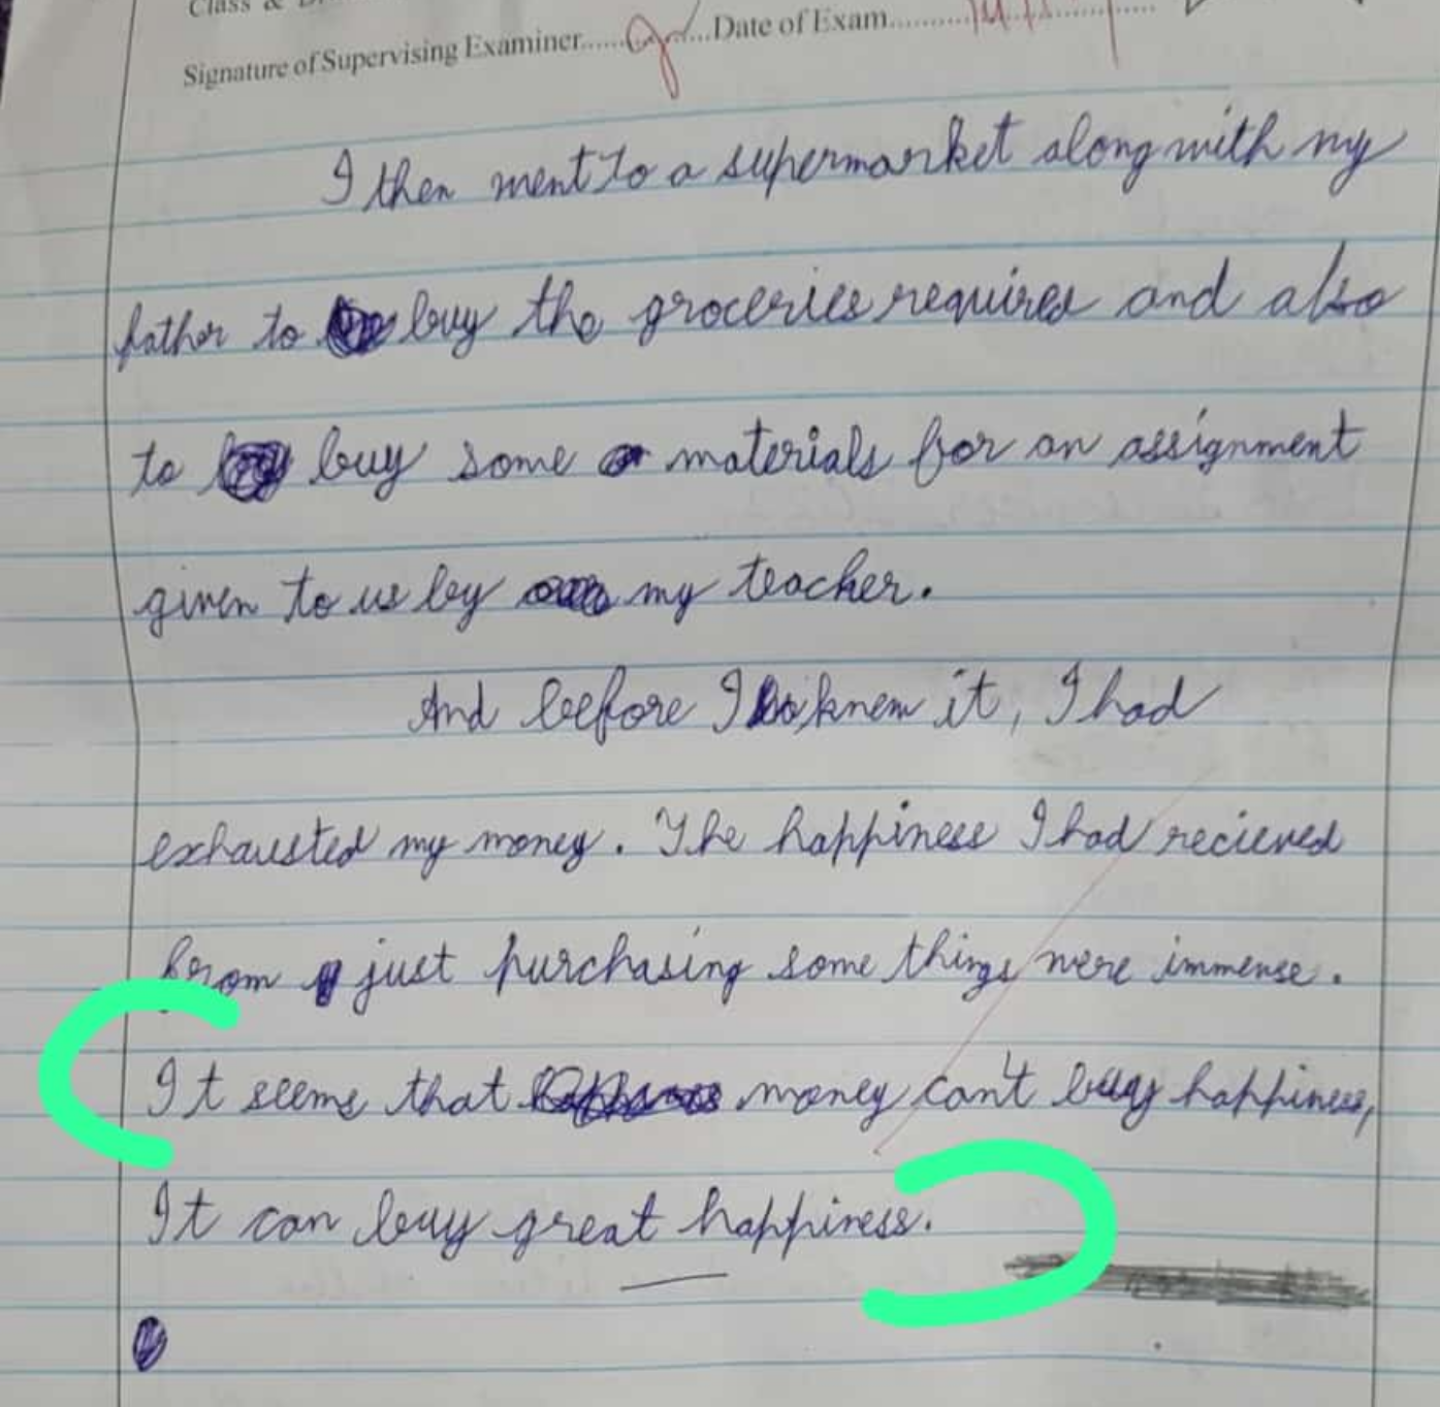 Class &
Signature of Supervising Examiner............Date of Exam
I then went to a supermarket along with my
father to buy the groceries required and also
to buy some materials for an assignment
given to us by my teacher.
And before I knew it, I had
exhausted my money. The happiness I had recieved
from just purchasing some things were immense.
It seems that money can't buy happiness,
It can buy great happiness.